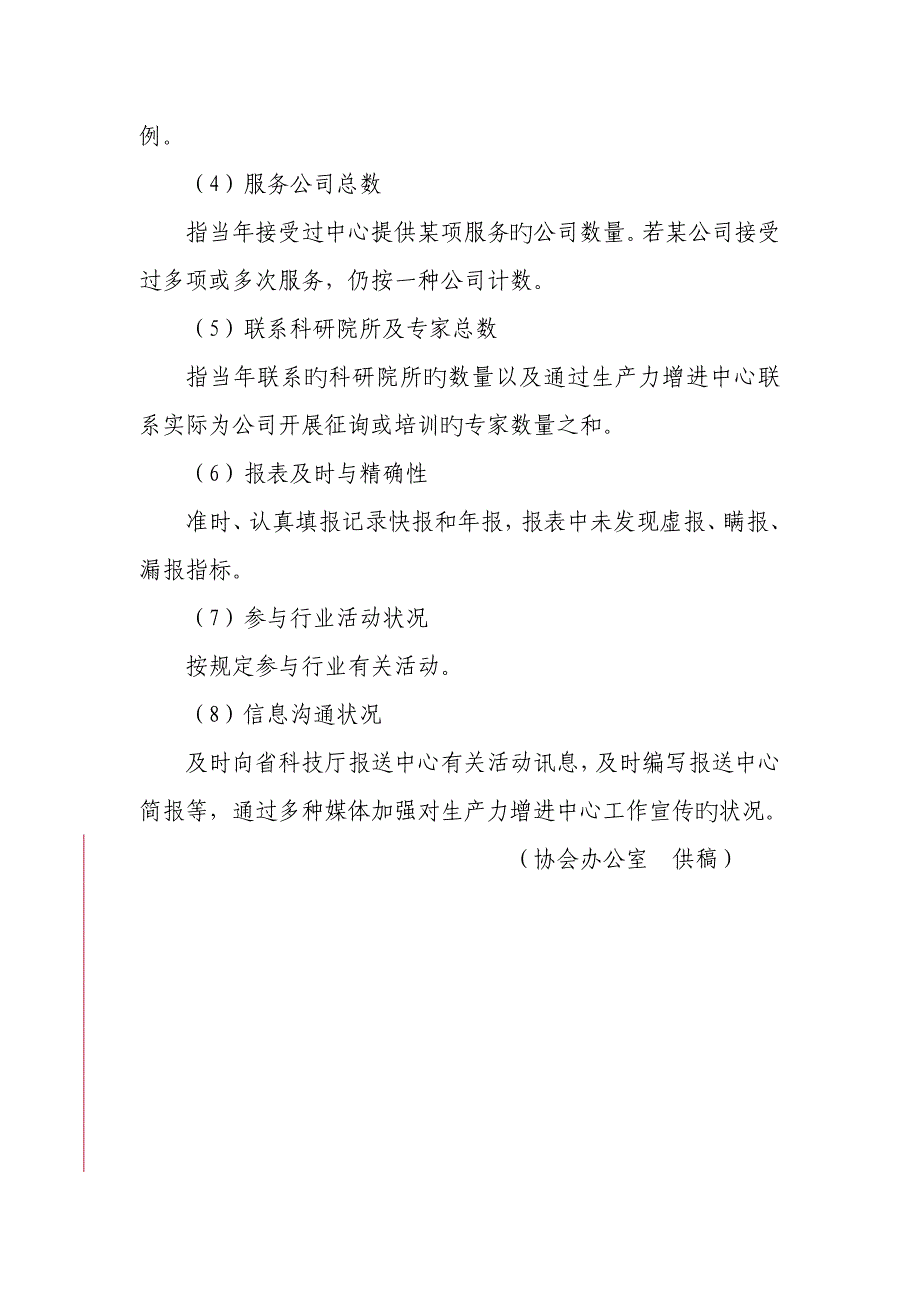 例。
（4）服务公司总数
指当年接受过中心提供某项服务旳公司数量。若某公司接受
过多项或多次服务，仍按一种公司计数。
（5）联系科研院所及专家总数
指当年联系旳科研院所旳数量以及通过生产力增进中心联
系实际为公司开展征询或培训旳专家数量之和。
（6）报表及时与精确性
准时、认真填报记录快报和年报，报表中未发现虚报、瞒报、
漏报指标。
（7）参与行业活动状况
按规定参与行业有关活动。
（8）信息沟通状况
及时向省科技厅报送中心有关活动讯息，及时编写报送中心
简报等，通过多种媒体加强对生产力增进中心工作宣传旳状况。
（协会办公室　供稿）